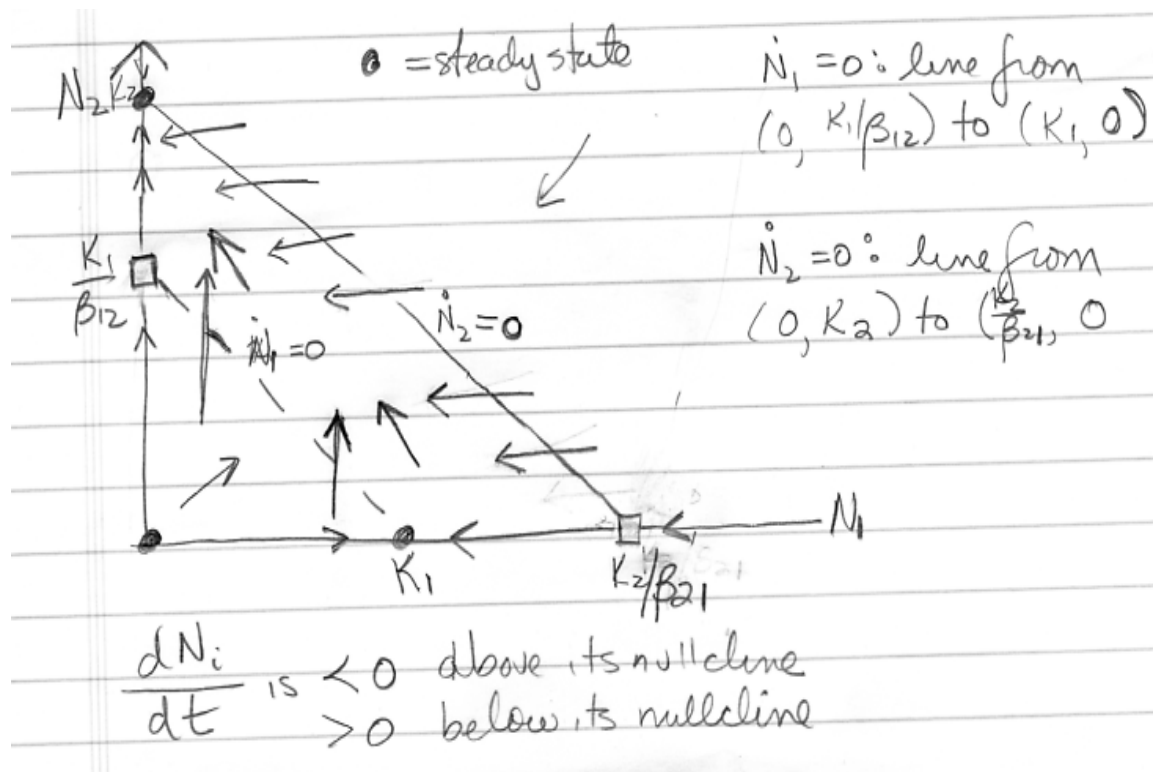 ● = steady state
Ṅ₁ = 0: line from
(0, K₁/β₁₂) to (K₁, 0)
Ṅ₂ = 0: line from
(0, K₂) to (K₂/β₂₁, 0
N₂ K₂
K₁/β₁₂
Ṅ₂ = 0
Ṅ₁ = 0
N₁
K₁
K₂/β₂₁
dNᵢ/dt is < 0 above its nullcline
> 0 below its nullcline